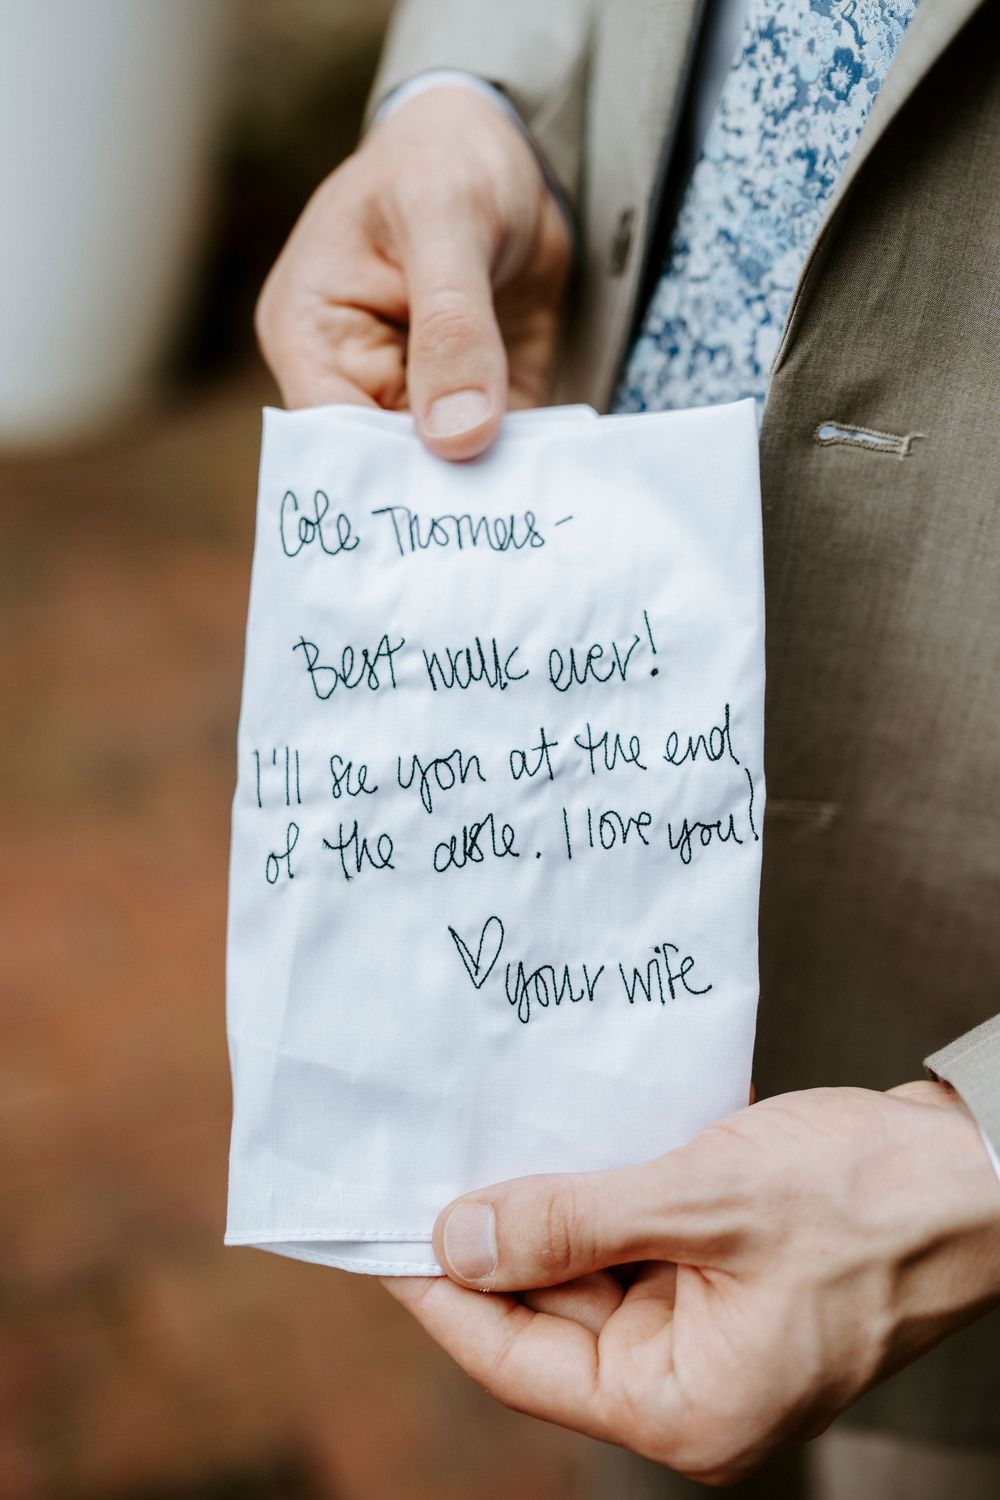 Cole Thomas-
Best walk ever!
I'll see you at the end
of the aisle. I love you!
♡ your wife